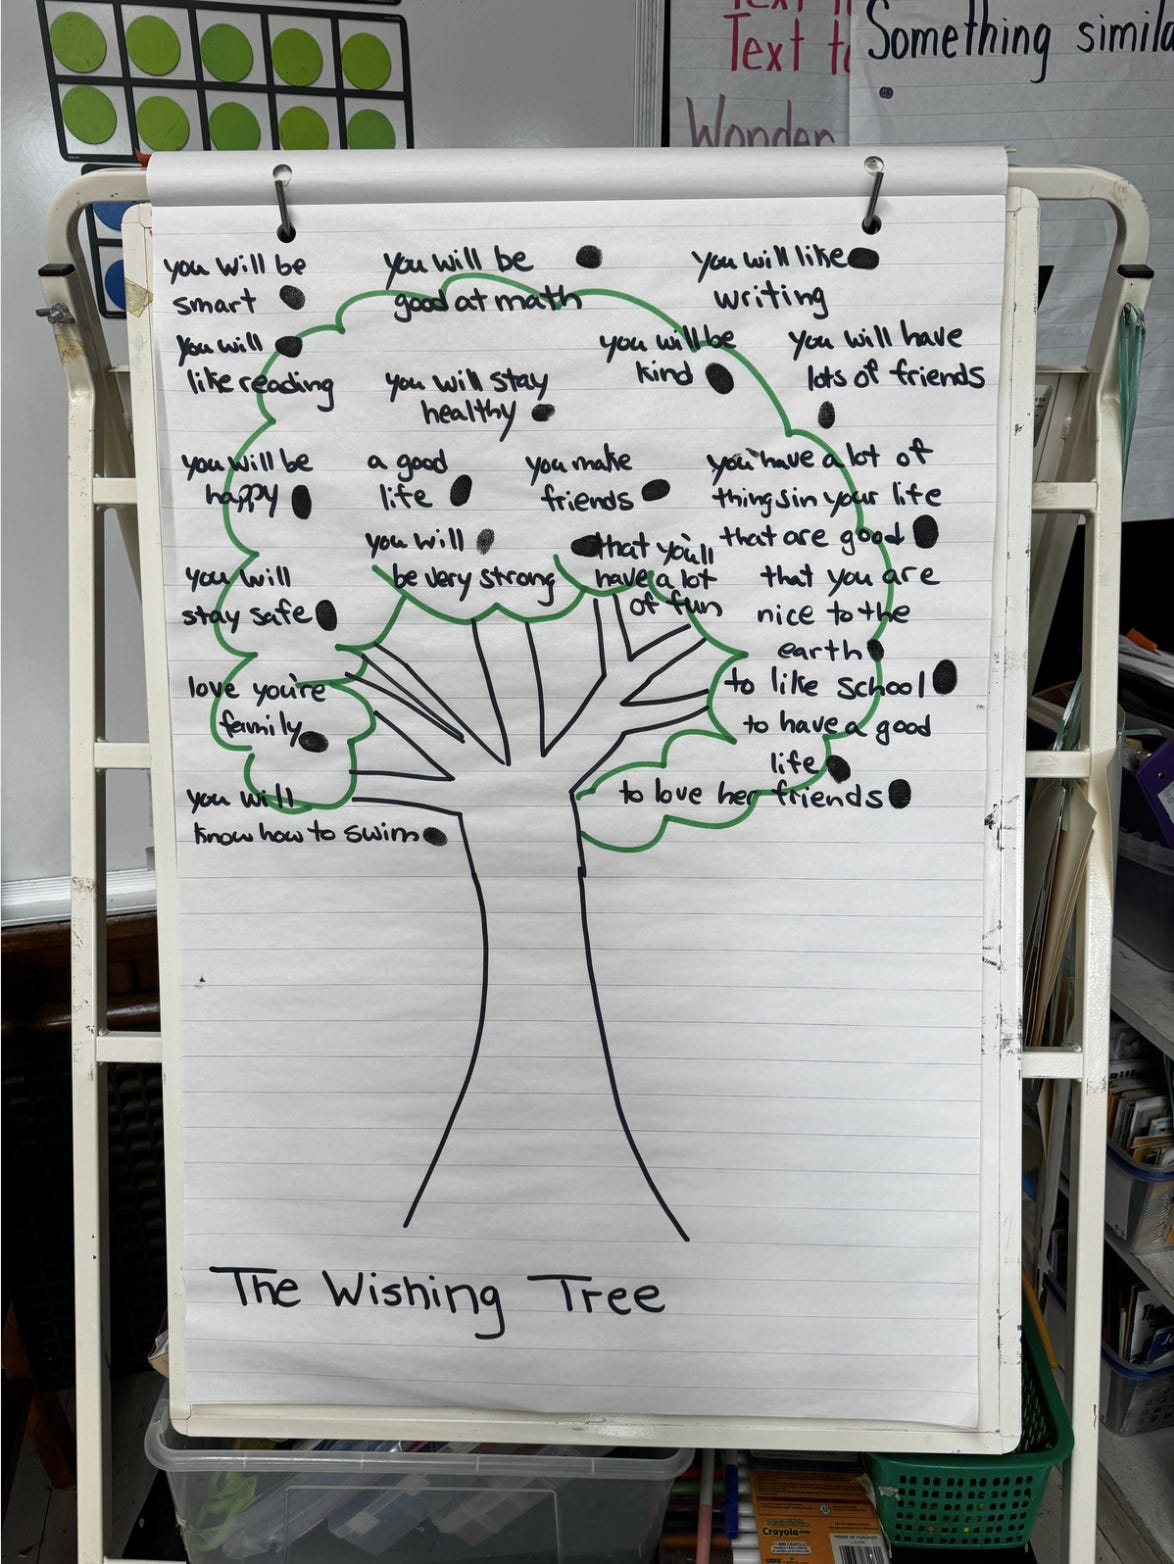 Text t
Something simila
Wonder
you will be
smart
you will be
good at math
you will like
writing
you will
like reading
you will stay
healthy
you will be
kind
you will have
lots of friends
you will be
happy
a good
life
you make
friends
you have a lot of
things in your life
that are good
you will
be very strong
that you'll
have a lot
of fun
that you are
nice to the
earth
you will
stay safe
love you're
family
to like school
to have a good
life
to love her friends
you will
know how to swim
The Wishing Tree
Crayola